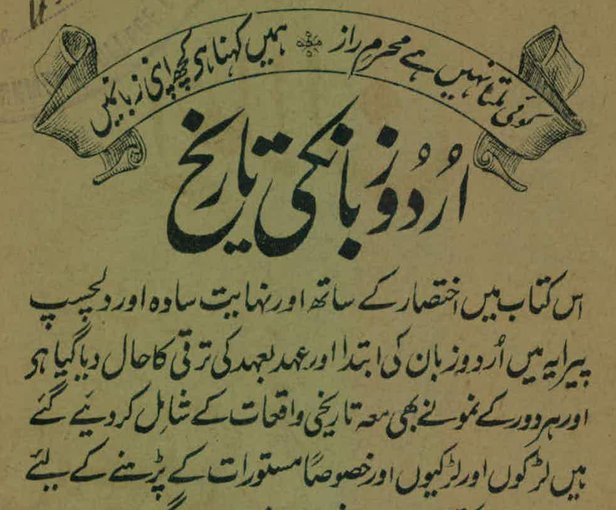 کوئی ملتا نہیں ہے محرم راز ہمیں کہنا ہی کچھ اپنی زبانمیں
اُردُو زبانکی تاریخ
اس کتاب میں اختصار کے ساتھ اور نہایت سادہ اور دلچسپ
پیرایہ میں اُردو زبان کی ابتدا اور عہد بعہد کی ترقی کا حال دیا گیا ہی
اور ہر دور کے نمونے بھی معہ تاریخی واقعات کے شامل کر دیئے گئے
ہیں لڑکوں اور لڑکیوں اور خصوصاً مستورات کے پڑہنے کے لیئے